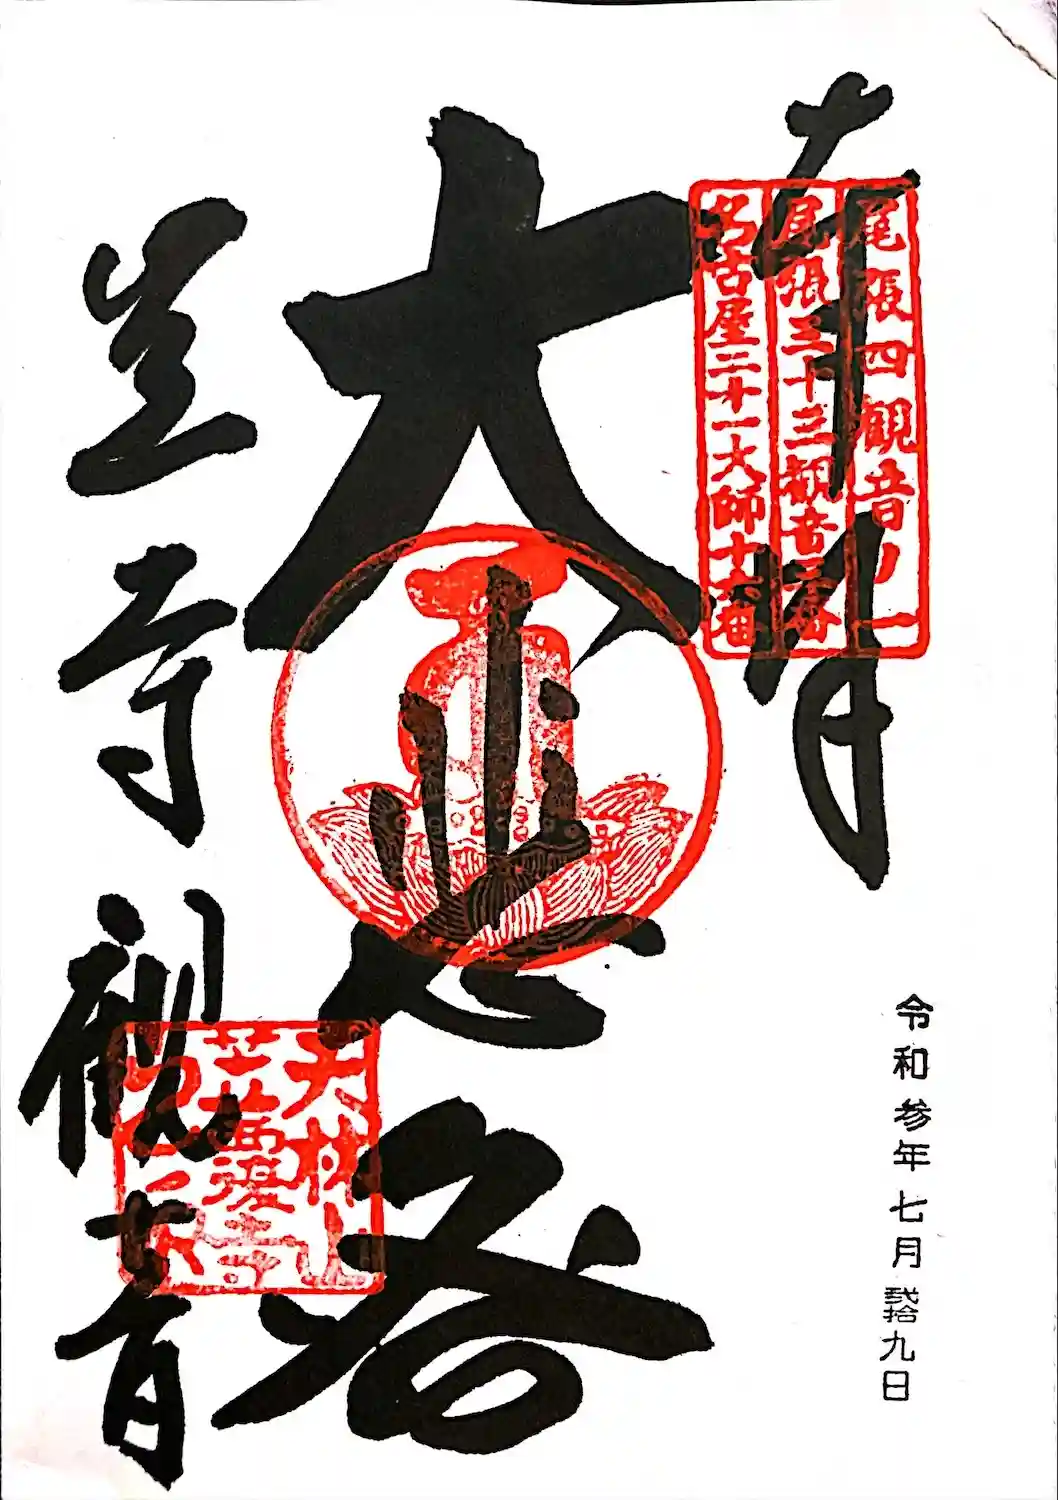 奉拝
尾張四観音ノ一
尾張三十三観音三番
名古屋二十一大師十六番
令和参年七月弐拾九日
大悲閣
笠寺観音
天林山
笠覆寺